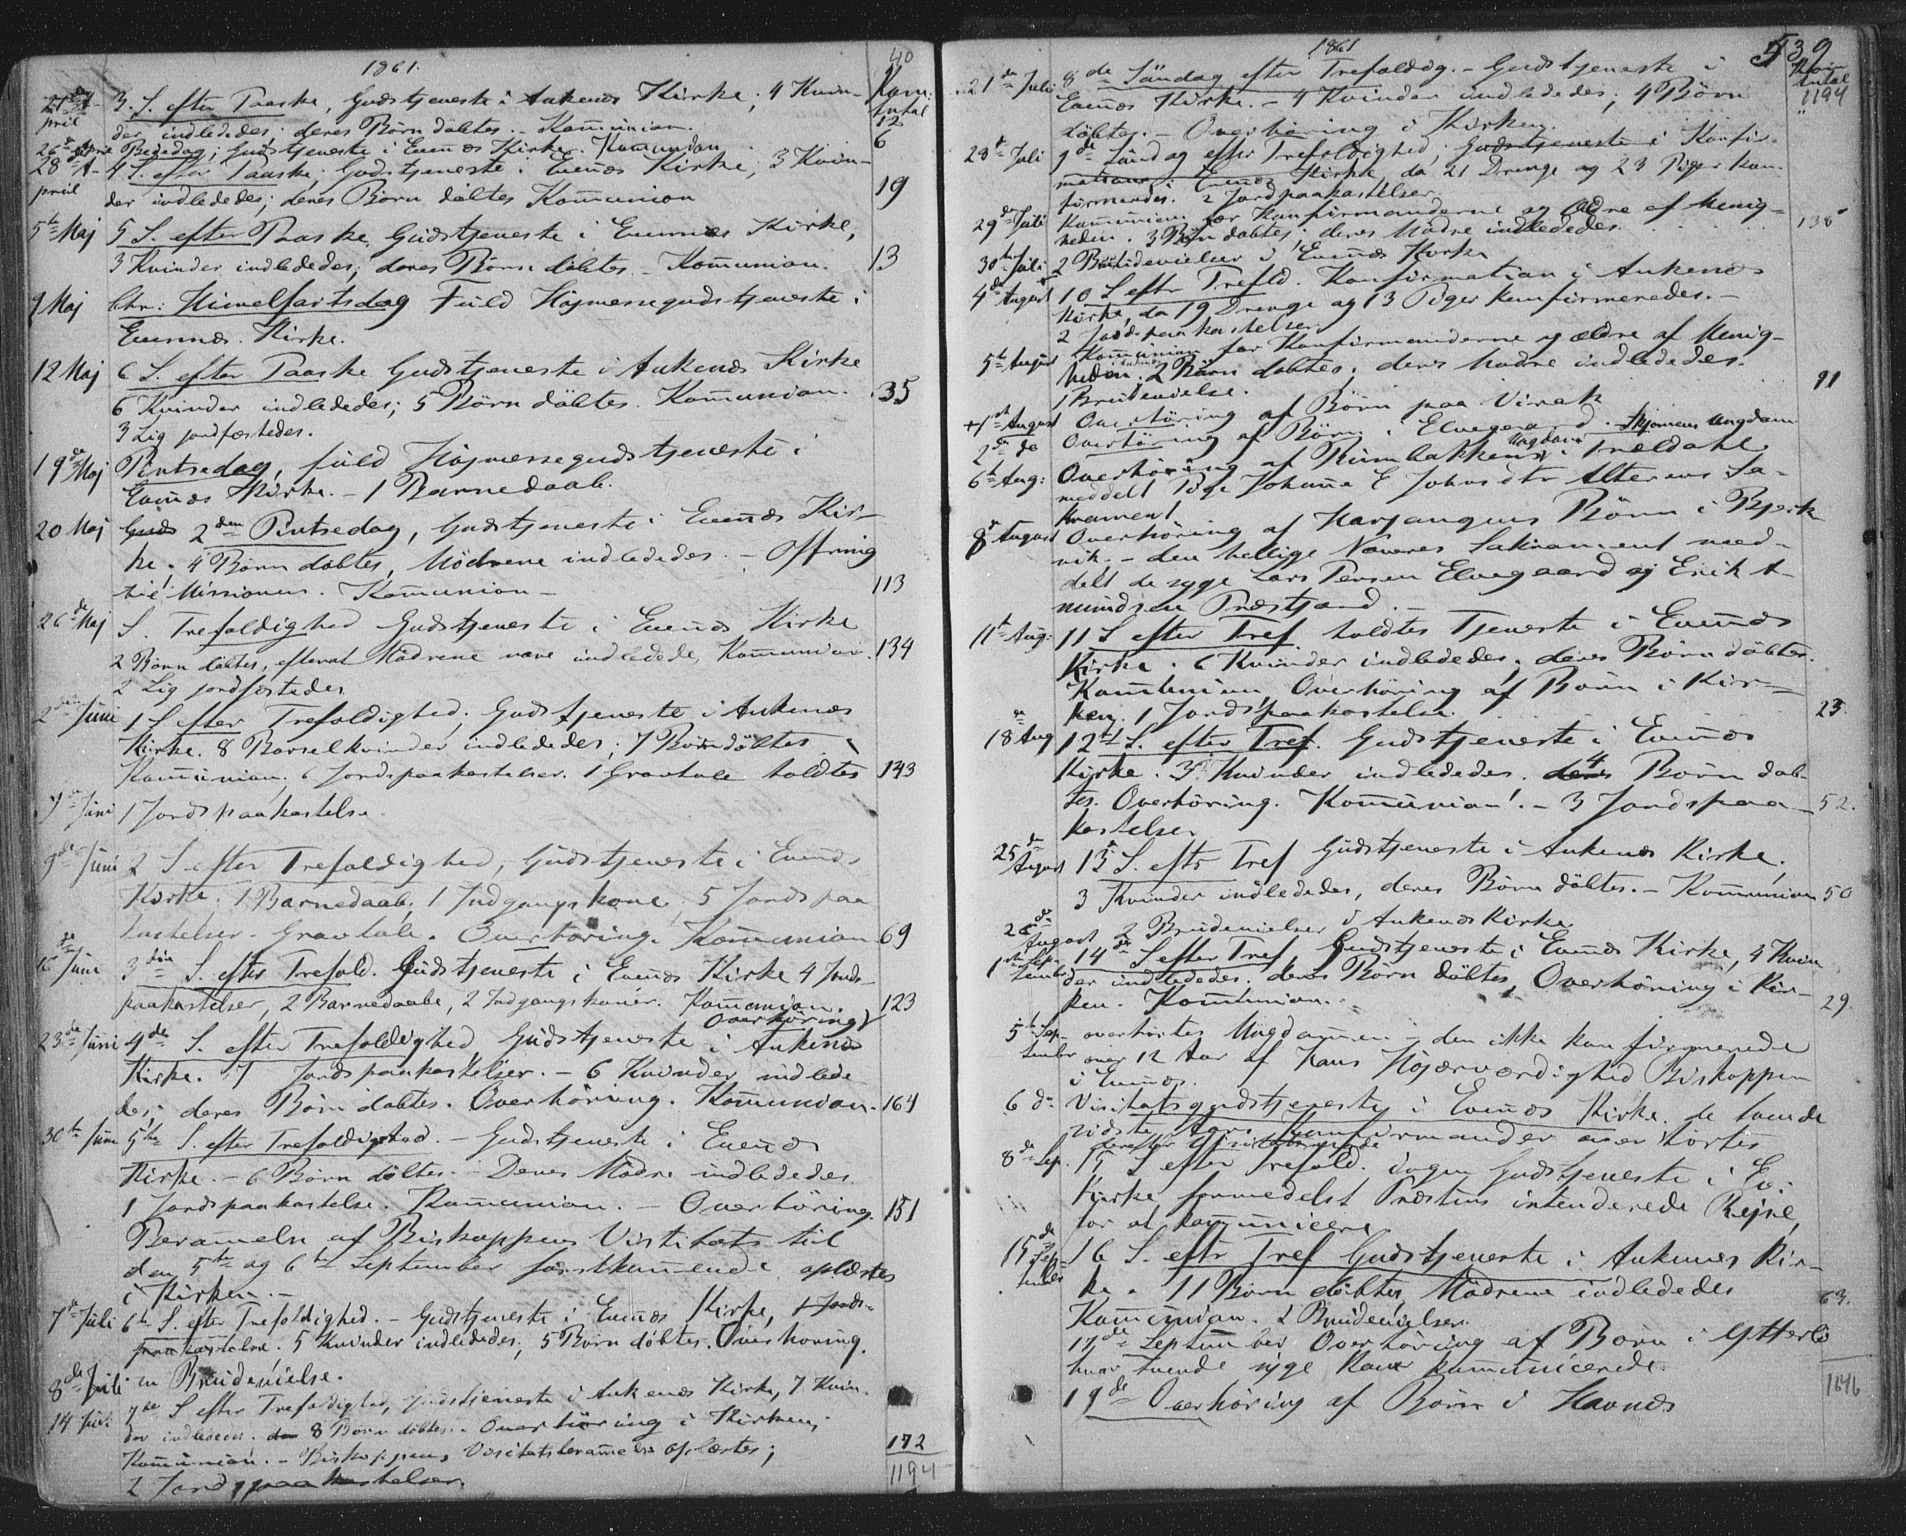 1861.
40
Kom:
Antal
21de A-
pril
3. S. efter Paaske, Gudstjeneste i Ankenæs Kirke; 4 Kvin-
der indledes; deres Børn døbtes. - Kom̄union. 12
26de April Bededag; Gudstjeneste i Evenæs Kirke. Kom̄union 6
28de A-
pril
4 S. efter Paaske; Gudstjeneste i Evenæs Kirke; 3 Kvin-
der indledes; deres Børn døbtes Kom̄union 19
5te Maj 5 S. efter Paaske Gudstjeneste i Evenæs Kirke,
3 Kvinder indledes; deres Børn døbtes - Kom̄union. 13
9 Maj Chr: Himelfartsdag Fuld Højmessegudstjeneste i
Evenæs Kirke.
12 Maj 6 S. efter Paaske Gudstjeneste i Ankenæs Kirke
6 Kvinder indledes; 5 Børn døbtes. Kom̄union. 35
3 Lig jordfæstedes.
19de Maj Pintsedag, fuld Højmessegudstjeneste i
Evenæs Kirke. - 1 Barnedaab.
20 Maj Guds 2den Pintsedag, Gudstjeneste i Evenæs Kir-
ke. 4 Børn døbtes, Mødrene indledes. - Offring
til Missionen. Kom̄union - 113
26de Maj S. Trefoldighed Gudstjeneste i Evenæs Kirke
2 Børn døbtes, efterat Mødrene vare indledede, Kom̄union. 134
2 Lig jordfæstedes
2den Juni 1 S. efter Trefoldighed. Gudstjeneste i Ankenæs
Kirke. 8 Barselkvinder indledes; 7 Børn døbtes
Kom̄union. 6 Jordspaakastelser. 1 Gravtale holdtes 143
7de Juni 1 Jordspaakastelse.
9de Juni 2 S. efter Trefoldighed, Gudstjeneste i Evenæs
Kirke. 1 Barnedaab, 1 Indgangskone, 5 Jordspaa
kastelser. Gravtale. Overhøring. Kom̄union 69
16de Juni 3die S. efter Trefold. Gudstjeneste i Evenæs Kirke 4 Jords-
paakastelser, 2 Barnedaabe, 2 Indgangskoner. Kom̄union. 123
Overhøring
23de Juni 4de S. efter Trefoldighed Gudstjeneste i Ankenæs
Kirke. 7 Jordspaakastelser. - 6 Kvinder indlede
des; deres Børn døbtes. Overhøring. Kom̄union. 164
30te Juni 5te S. efter Trefoldighed. - Gudstjeneste i Evenæs
Kirke. - 6 Børn døbtes. - Deres Mødre indledes.
1 Jordspaakastelse. Kom̄union. - Overhøring. 151
Beramelse af Biskoppens Visitats til
den 5te og 6te September førstkom̄ende oplæstes
i Kirken. -
7de Juli 6te S. efter Trefoldighed. - Gudstjeneste i Evenæs Kirke, 1 Jords-
paakastelse. 5 Kvinder indledes; 5 Børn døbtes. Overhøring.
8de Juli en Brudevielse.
14 Juli 7de S efter Trefoldighed, Gudstjeneste i Ankenæs Kirke, 7 Kvin-
der indledes. 8 Børn døbtes. Overhøring i Kirken;
Kom̄union. - Biskoppens Visitatsberamelse oplæstes; 172
2 Jordspaakastelser. 1194
1861
539
Kom:
Antal
1194
21de Juli 8de Søndag efter Trefoldig. - Gudstjeneste i
Evenæs Kirke. - 4 Kvinder indledes; 4 Børn
døbtes. - Overhøring i Kirken. "
28de Juli 9de Søndag efter Trefoldighed; Gudstjeneste i Konfir-
mationen i Evenæs Kirke, da 21 Drenge og 23 Piger kon-
firmerdes. 2 Jordpaakastelser.
29de Juli Kom̄union for Konfirmanderne og ældre af Menig- 138
heden. 3 Børn døbtes; deres Mødre indledes.
30te Juli 2 Brudevielser i Evenæs Kirke
4de August 10 S. efter Trefld. Konfirmation i Ankenæs
Kirke, da 19 Drenge og 13 Piger konfirmeredes. -
2 Jordspaakastelser.
5te August Kom̄union for Konfirmanderne og ældre af Menig-
heden. 2 Børn døbtes; deres Mødre indledes. 91
1 Brudevielse.
August Overhøring af Børn paa Virek
do Overhøring af Børn i Elvegaard. Skjomens Ungdom
6te Aug: Overhøring af Rumbakkens Ungdom i Trældahl
meddelt Pige Johan̄e E Johnsdtr Alterens Sa-
krament.
8de August Overhøring af Harjangens Børn i Bjerk
vik. - den hellige Nadveres Sakrament med-
delt de syge Lars Persen Elvegaard og Erik A-
mundsen Præstjord. -
11te Aug: 11 S. efter Tref. holdtes Tjeneste i Evenæs
Kirke. 6 Kvinder indledes; deres Børn døbtes.
Kom̄union, Overhøring af Børn i Kir-
ken. 1 Jordspaakastelse. 23.
18de Aug 12te S. efter Tref. Gudstjeneste i Evenæs
Kirke. 3 Kvinder indledes. deres 4 Børn døb-
tes. Overhøring. Kom̄union. - 3 Jordspaa- 52.
kastelser
25de
August
13 S. eftr Tref Gudstjeneste i Ankenæs Kirke.
3 Kvinder indledes, deres Børn døbtes. - Kom̄union 50
26de
August
2 Brudevielser i Ankenæs Kirke.
1ste Sep-
tember
14de S. efter Tref. Gudstjeneste i Evenæs Kirke, 3 Kvin
der indledes. deres Børn døbtes, Overhøring i Kir-
ken. Kom̄union. 29.
5te Sep-
tember
overhørtes Ungdom̄en - den ikke konfirmerede
over 12 Aar af Hans Højærværdighed Biskoppen
i Evenæs.
6 do Visitatsgudstjeneste i Evenæs Kirke. de tvende
sidste Aars Konfirmander overhørtes
8de Sep. 15 S. efter Trefold. ingen Gudstjeneste i Ev:
Kirke formedelst Præstens intenderede Rejse,
for at kom̄unicere
15de
Sep-
tember
16 S. eftr Tref Gudstjeneste i Ankenæs Kir-
ke. 11 Børn døbtes, Mødrene indledes
Kom̄union. 2 Brudevielser. 63.
17de September Overhøring af Børn i Ytterli
hvor tvende syge Koner kom̄unicerede.
19de Overhøring af Børn i Havnæs
1646